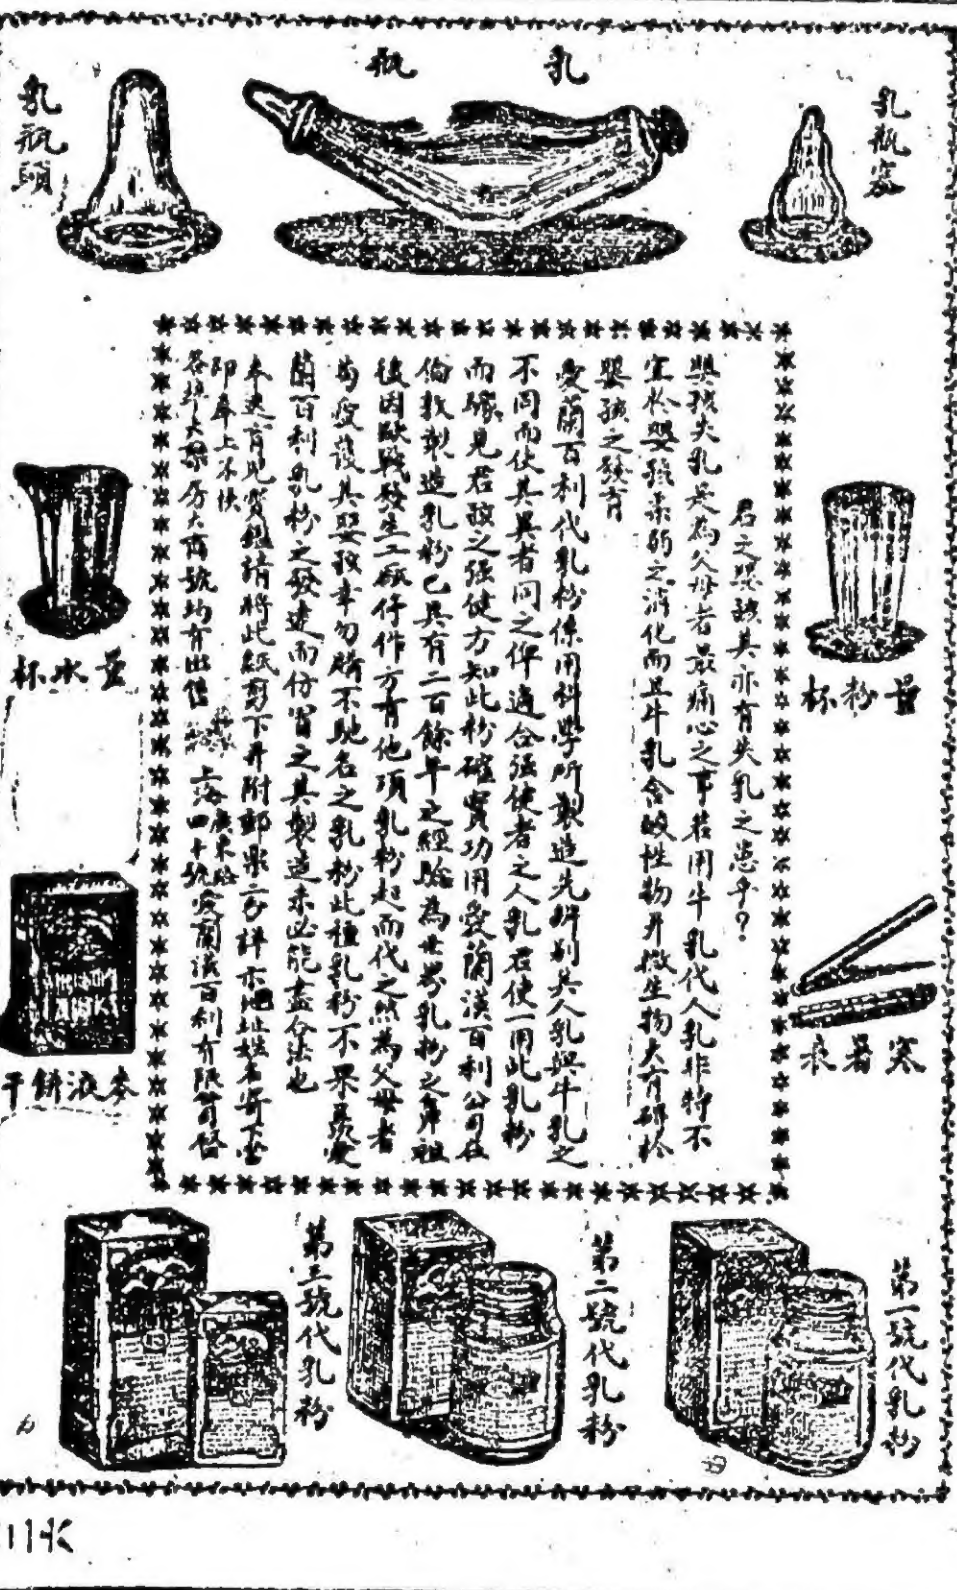 乳瓶
乳瓶塞
乳瓶頭
量粉杯
量水杯
寒暑表
麥液餅干
君之嬰孩其亦有失乳之患乎？
嬰孩失乳是為父母者最痛心之事若用牛乳代人乳非特不
宜於嬰孩柔弱之消化而且牛乳含酸性物并微生物大有碍於
嬰孩之發育
愛蘭百利代乳粉係用科學所製造先辨別其人乳與牛乳之
不同而使其異者同之俾適合強健者之人乳君使一用此乳粉
而瞭見君孩之強健方知此粉確實功用愛蘭漢百利公司在
倫敦製造乳粉已具有二百餘年之經驗為世界乳粉之鼻祖
後因歐戰發生工廠停作方有他項乳粉起而代之然為父母者
苟愛護其嬰孩幸勿購不馳名之乳粉此種乳粉不果及愛
蘭百利乳粉之發達而仿冒之其製造未必能盡合法也
本送育兒寶鑑請將此紙剪下并附郵票二分詳示地址姓名寄下當
即奉上不悞
各埠大藥房大商號均有出售
上海廣東路四十號愛蘭漢百利有限公司啓
第一號代乳粉
第二號代乳粉
第三號代乳粉